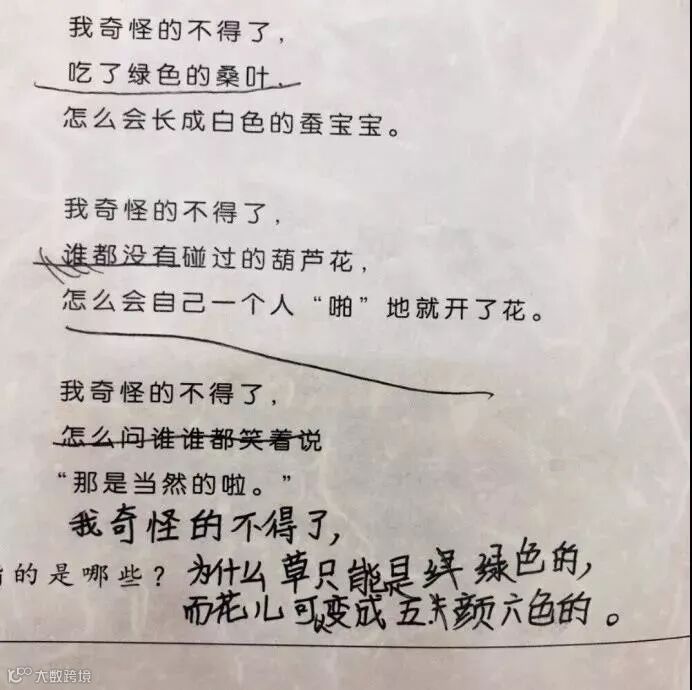 我奇怪的不得了，
吃了绿色的桑叶，
怎么会长成白色的蚕宝宝。
我奇怪的不得了，
谁都没有碰过的葫芦花，
怎么会自己一个人“啪”地就开了花。
我奇怪的不得了，
怎么问谁谁都笑着说
“那是当然的啦。”
我奇怪的不得了，
的是哪些？为什么草只能是绿色的，
而花儿可以变成五颜六色的。
大数跨境